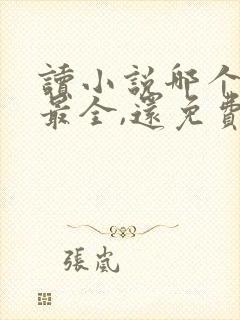 讀小說哪个
最全,還免費
張嵐